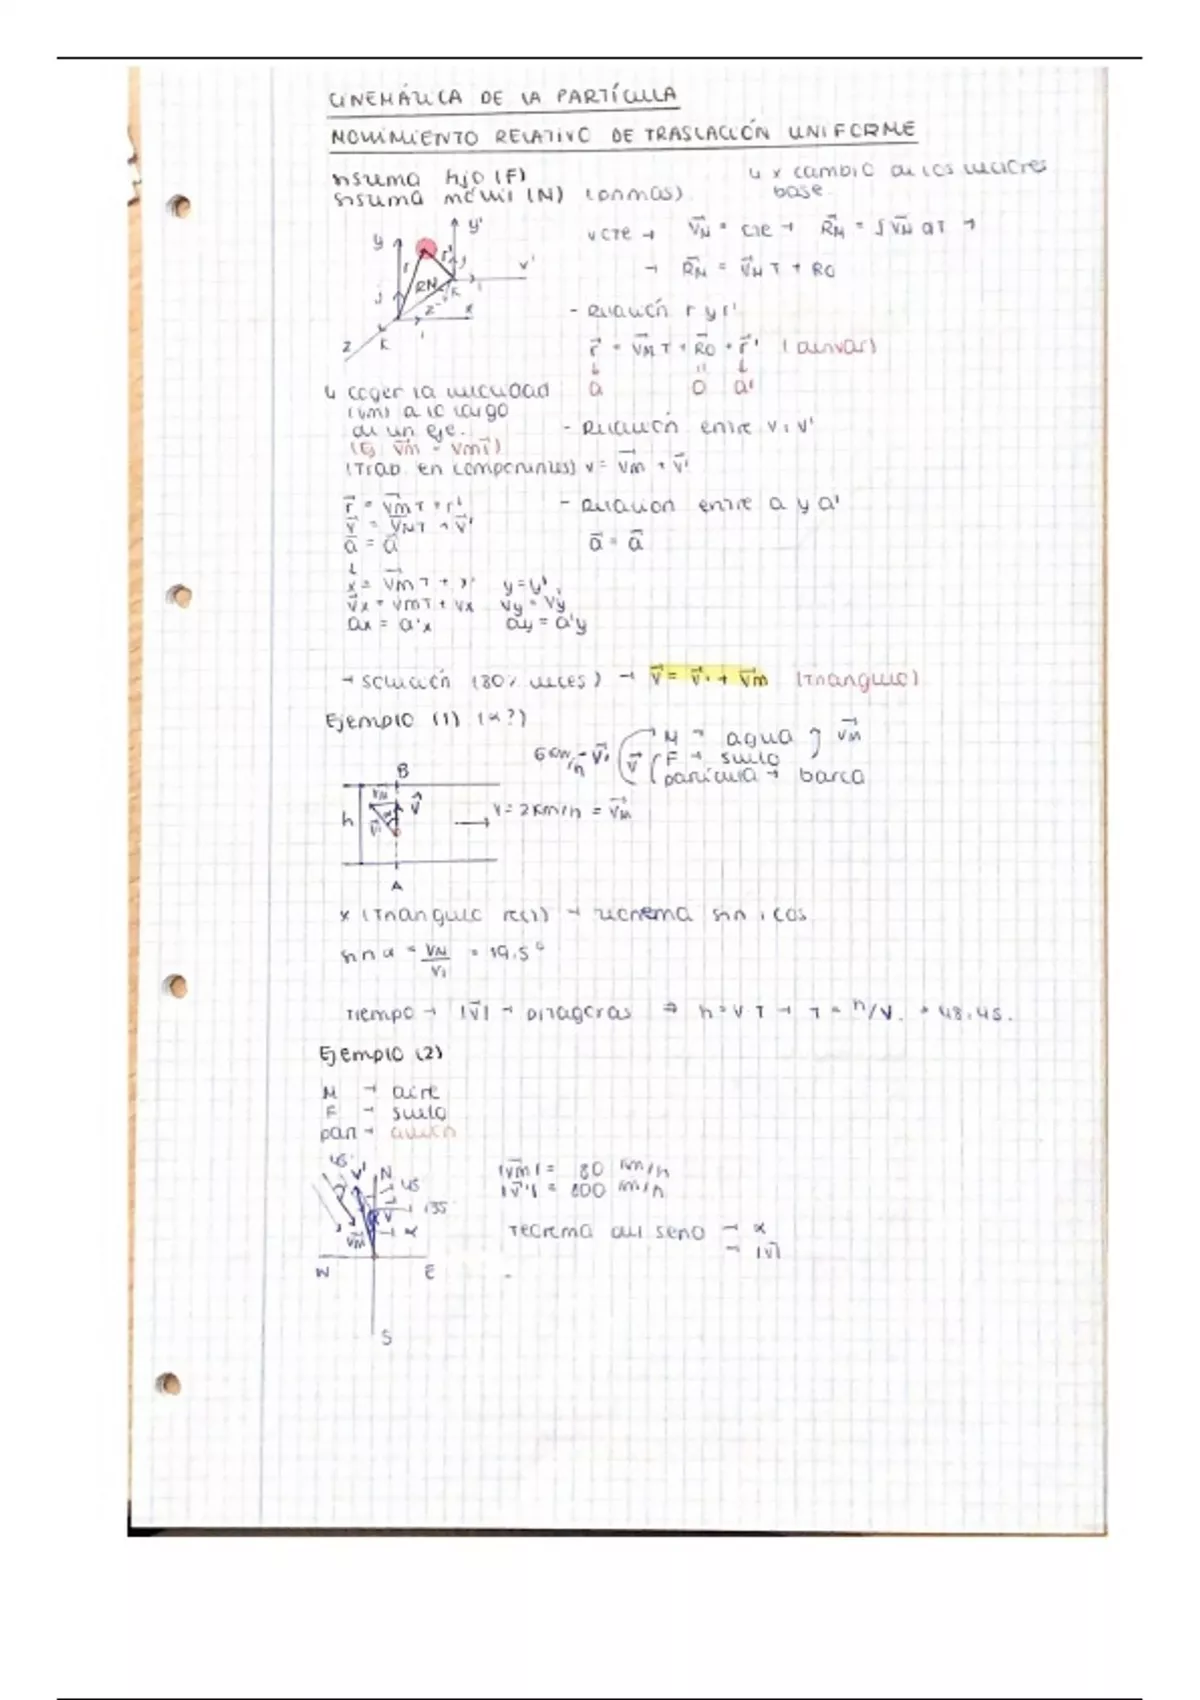 CINEMÁTICA DE LA PARTÍCULA
MOVIMIENTO RELATIVO DE TRASLACIÓN UNIFORME
sistema fijo (F)
sistema móvil (M) (primas)
↳ x cambio de los vectores
base.
y
y'
r
r'
RM
x
z
k
v cte → V⃗M = cte → R⃗M = ∫V⃗M dT →
→ R⃗M = V⃗M T + R0
- Relación r y r'
r⃗ = V⃗M T + R⃗0 + r⃗' (derivar)
a 0 a'
↳ coger la velocidad
(vm) a lo largo
de un eje.
(Ej v⃗m = vm i⃗)
(Trab. en componentes)
- Relación entre v y v'
v = v⃗m + v⃗'
r⃗ = v⃗m T + r'
v⃗ = v⃗M T + v⃗'
a⃗ = a⃗
- Relación entre a y a'
a⃗ = a⃗
x = v⃗m T + x' y = y'
v⃗x = vm T + vx vy = vy
ax = a'x ay = a'y
→ solución (80% veces) → v⃗ = v⃗' + v⃗m (triángulo)
Ejemplo (1) (α?)
6 km/h = v⃗'
v⃗
M → agua
F → suelo
partícula → barca
v⃗M
B
h
v⃗M
v⃗
v⃗'
A
v = 2 km/h = v⃗M
x (Triángulo rect) → teorema sin y cos
sin α = VM/V' = 19.5°
Tiempo → |v⃗| → pitágoras ⇒ h = v·T → T = h/v
Ejemplo (2)
M → aire
F → suelo
part → avión
45°
v'
N
45
135
v
α
v⃗M
W
E
S
|v⃗m| = 80 km/h
|v⃗'| = 800 km/h
Teorema del seno → α
→ |v⃗|